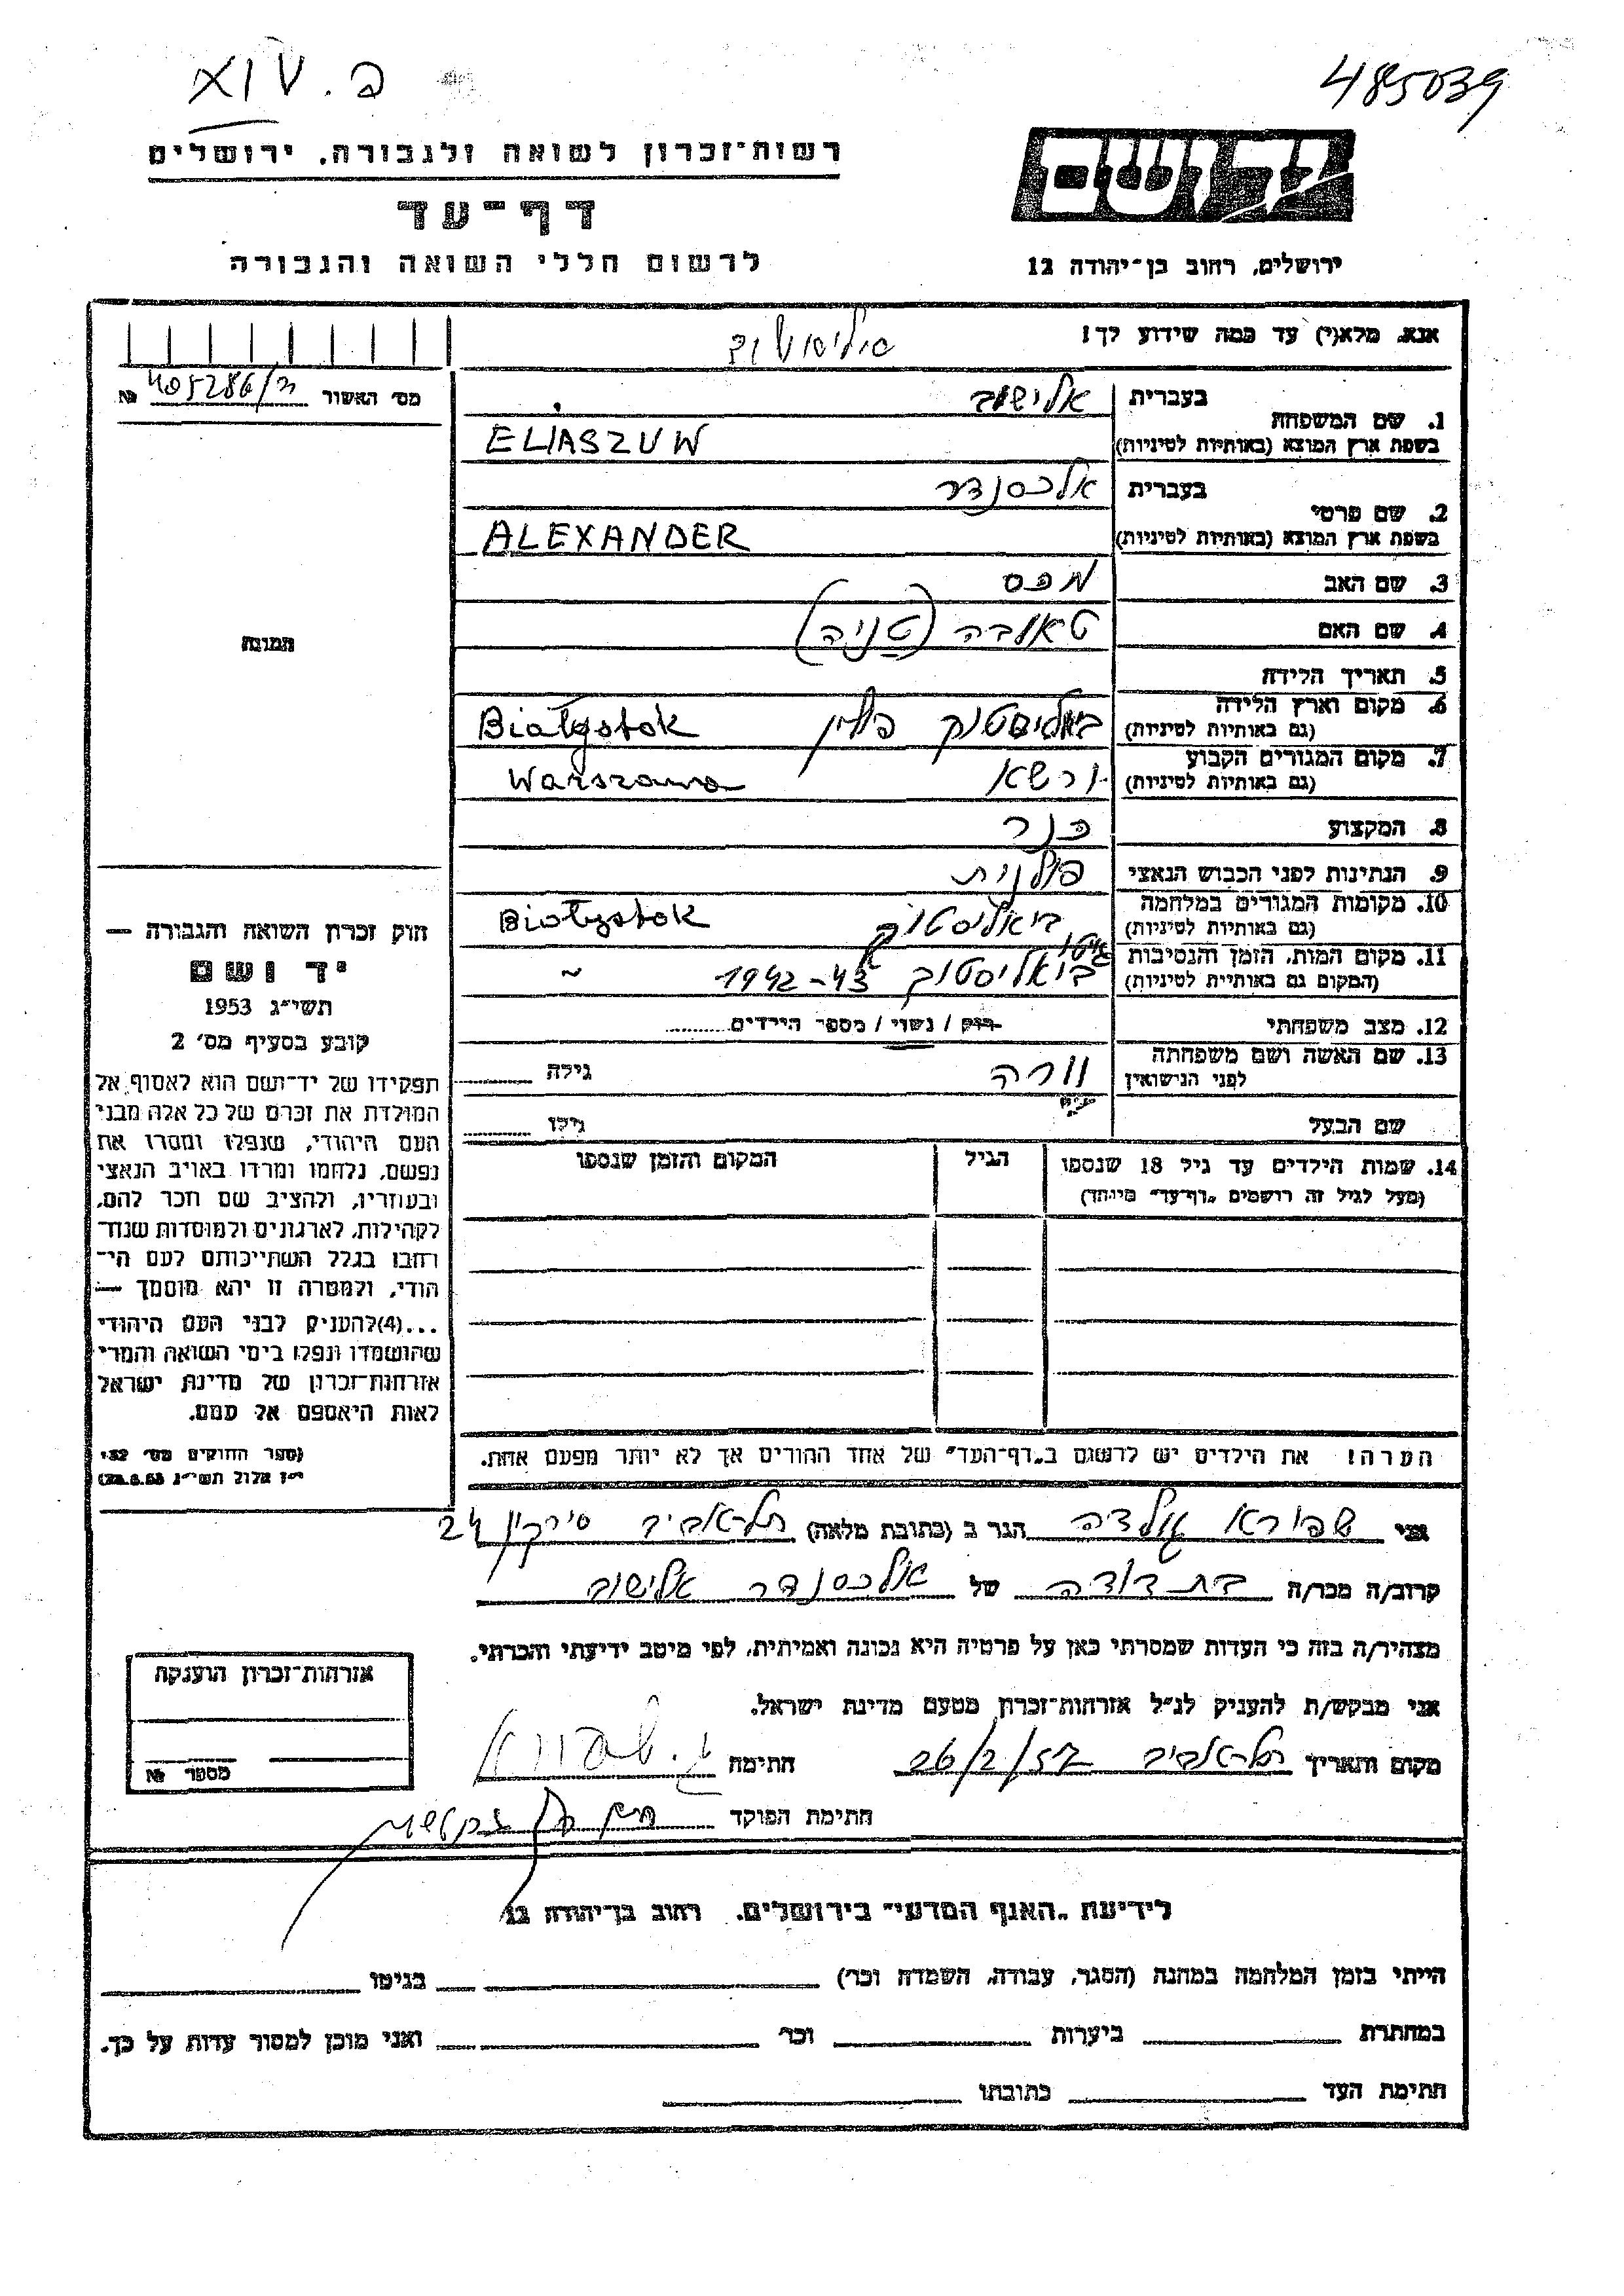 XIV . פ
485039
רשות־זכרון לשואה ולגבורה, ירושלים
דף־עד
לרשום חללי השואה והגבורה
ירושלים, רחוב בן־יהודה 12
אנא, מלא(י) עד כמה שידוע לך!
מס׳ האשור
№
1. שם המשפחה
בעברית
אלישוב
בשפת ארץ המוצא (באותיות לטיניות)
ELIASZUW
2. שם פרטי
בעברית
אלכסנדר
בשפת ארץ המוצא (באותיות לטיניות)
ALEXANDER
3. שם האב
4. שם האם
טאובה (טניה)
תמונה
5. תאריך הלידה
6. מקום וארץ הלידה
(גם באותיות לטיניות)
ביאליסטוק פולין Białystok
7. מקום המגורים הקבוע
(גם באותיות לטיניות)
ורשא Warszawa
8. המקצוע
כנר
9. הנתינות לפני הכבוש הנאצי
פולנית
10. מקומות המגורים במלחמה
(גם באותיות לטיניות)
ביאליסטוק Białystok
11. מקום המות, הזמן והנסיבות
(המקום גם באותיות לטיניות)
גיטו ביאליסטוק 1942-43
12. מצב משפחתי
רוק / נשוי / מספר הילדים
13. שם האשה ושם משפחתה
לפני הנישואין
וורה
גילה
שם הבעל
גילו
14. שמות הילדים עד גיל 18 שנספו
(מעל לגיל זה רושמים „דף־עד״ מיוחד)
הגיל
המקום והזמן שנספו
חוק זכרון השואה והגבורה —
יד ושם
תשי״ג 1953
קובע בסעיף מס׳ 2
תפקידו של יד־ושם הוא לאסוף אל
המולדת את זכרם של כל אלה מבני
העם היהודי, שנפלו ומסרו את
נפשם, נלחמו ומרדו באויב הנאצי
ובעוזריו, ולהציב שם וזכר להם,
לקהילות, לארגונים ולמוסדות שנח־
רבו בגלל השתייכותם לעם הי־
הודי, ולמטרה זו יהא מוסמך —
...(4)להעניק לבני העם היהודי
שהושמדו ונפלו בימי השואה והמרי
אזרחות־זכרון של מדינת ישראל
לאות היאספם אל עמם.
(ספר החוקים מס׳ 132,
י״ז אלול תשי״ג 28.8.53)
הערה! את הילדים יש לרשום ב„דף־העד״ של אחד ההורים אך לא יותר מפעם אחת.
אני שפירא גולדה הגר ב (כתובת מלאה) תל־אביב סירקין 24
קרוב/ה מכר/ה בת דודה של אלכסנדר אלישוב
מצהיר/ה בזה כי העדות שמסרתי כאן על פרטיה היא נכונה ואמיתית, לפי מיטב ידיעתי והכרתי.
אני מבקש/ת להעניק לנ״ל אזרחות־זכרון מטעם מדינת ישראל.
מקום ותאריך תל־אביב 26/2/57 חתימה ג. שפירא
חתימת הפוקד
אזרחות־זכרון הוענקה
מספר №
לידיעת „האגף המדעי״ בירושלים, רחוב בן־יהודה 12
הייתי בזמן המלחמה במחנה (הסגר, עבודה, השמדה וכר׳) בגיטו
במחתרת ביערות וכר׳ ואני מוכן למסור עדות על כך.
חתימת העד כתובתו